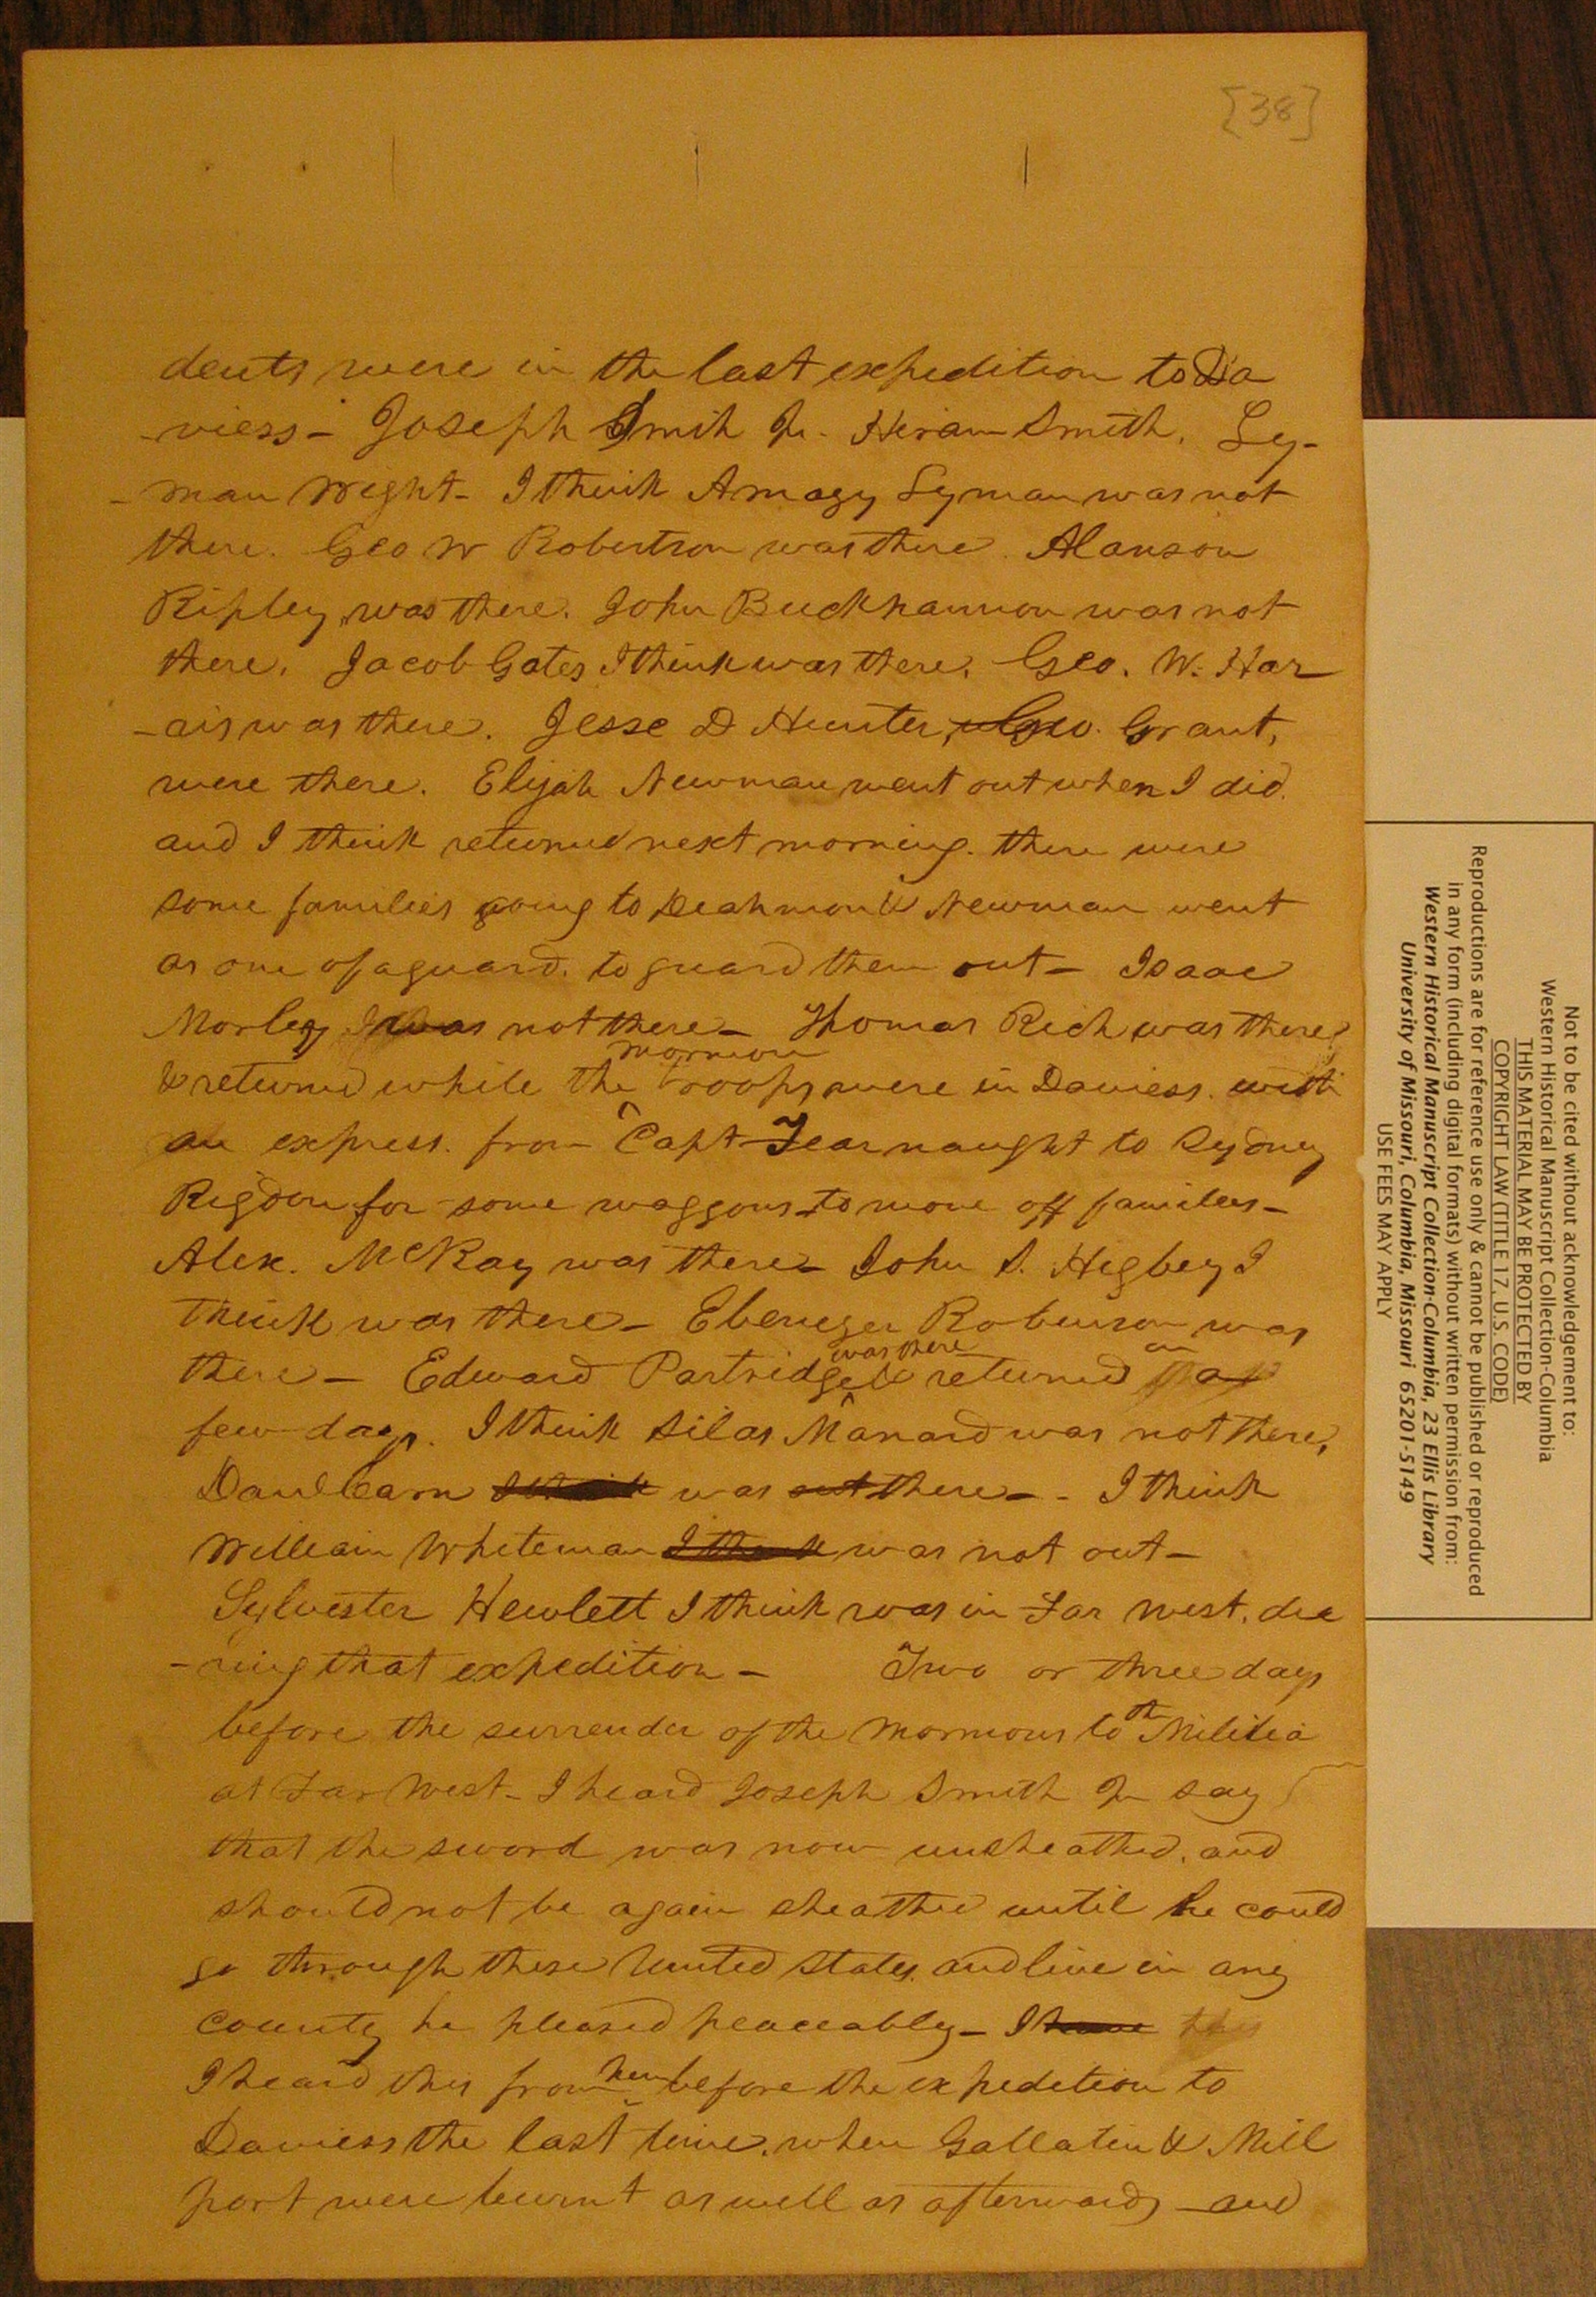 [38]
dents were in the last expedition to Da
-viess - Joseph Smith Jr. Hiram Smith. Ly-
-man Wight - I think Amazy Lyman was not
there. Geo W Robertson was there. Alanson
Ripley was there. John Buckhannon was not
there. Jacob Gates I think was there. Geo. W. Har
-ris was there. Jesse D Hunter, Geo. Grant,
were there. Elijah Newman went out when I did.
and I think returned next morning. there were
some families going to Deahmon & Newman went
as one of a guard. to guard them out - Isaac
Morley was not there - Thomas Rich was there
mormon
& returned while the ^ troops were in Daviess. with
an express. from Capt Fearnaught to Sydney
Rigdon for some waggons to move off families -
Alex. McRay was there - John S. Higbey I
think was there - Ebenezer Robinson was
was there in
there - Edward Partridge ^ & returned a
few days. I think Silas Manard was not there.
Danl Carn I think was not there - - I think
William Whiteman I think was not out -
Sylvester Hewlett I think was in Far West. du
-ring that expedition - Two or three days
before the surrender of the Mormons to th Militia
at Far West - I heard Joseph Smith Jr say
that the sword was now unsheathed. and
should not be again sheathed until he could
go through these United States. and live in any
county he pleased peaceably - I have
I heard this from him before the expedition to
Daviess the last time. when Gallatin & Mill
port were burnt as well as afterwards - and
Not to be cited without acknowledgement to:
Western Historical Manuscript Collection-Columbia
THIS MATERIAL MAY BE PROTECTED BY
COPYRIGHT LAW (TITLE 17, U.S. CODE)
Reproductions are for reference use only & cannot be published or reproduced
in any form (including digital formats) without written permission from:
Western Historical Manuscript Collection-Columbia, 23 Ellis Library
University of Missouri, Columbia, Missouri 65201-5149
USE FEES MAY APPLY